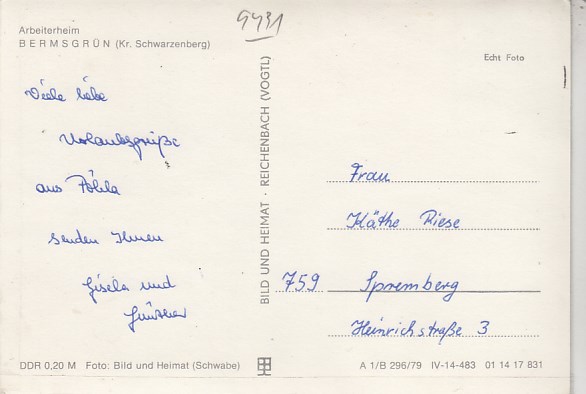 9431
Arbeiterheim
BERMSGRÜN (Kr. Schwarzenberg)
Echt Foto
Viele liebe
Urlaubsgrüße
aus Pöhla
senden Ihnen
Gisela und
Günther
BILD UND HEIMAT · REICHENBACH (VOGTL)
Frau
Käthe Riese
759 Spremberg
Heinrichstraße 3
DDR 0,20 M Foto: Bild und Heimat (Schwabe)
A 1/B 296/79 IV-14-483 01 14 17 831